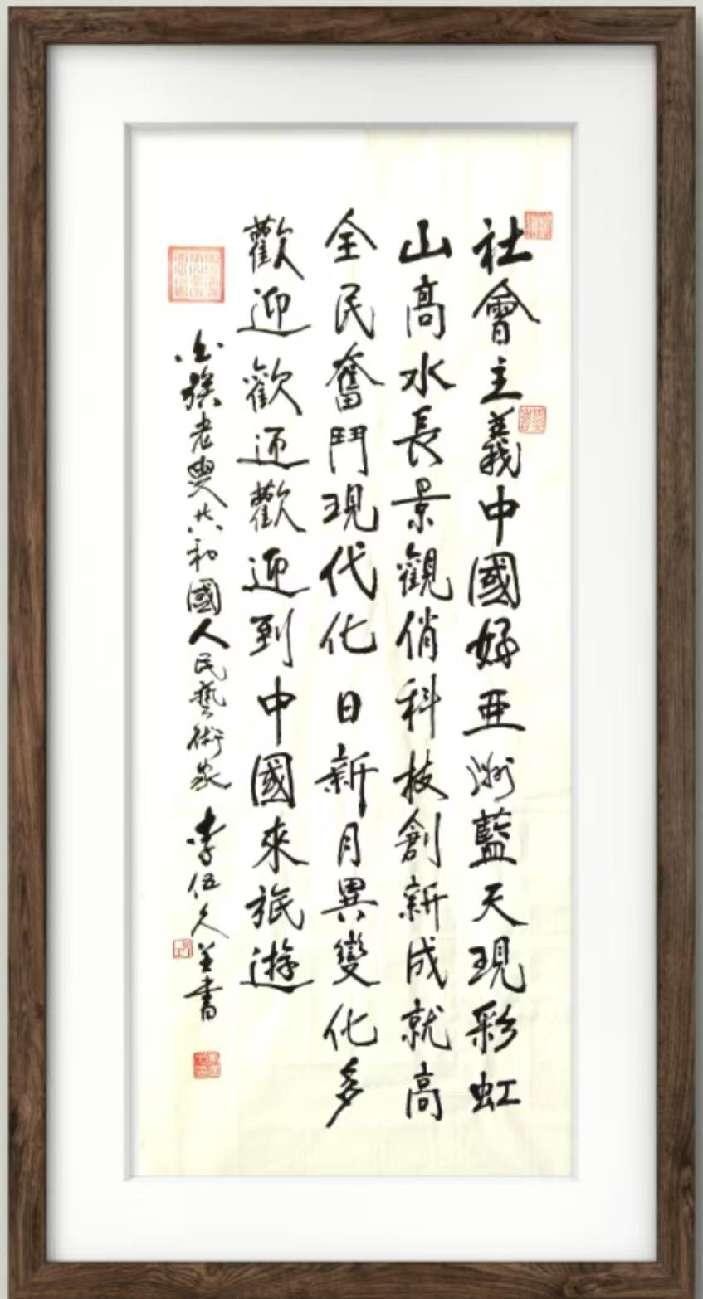 社會主義中國好亞洲藍天現彩虹
山高水長景觀俏科技創新成就高
全民奮鬥現代化日新月異變化多
歡迎歡迎歡迎到中國來旅遊
老叟共和國人民藝術家李伍久並書